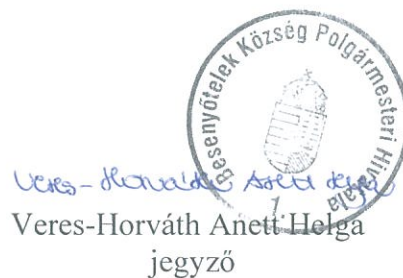 Besenyőtelek Község Polgármesteri Hivatala
1.
Veres-Horváth Anett Helga
Veres-Horváth Anett Helga
jegyző